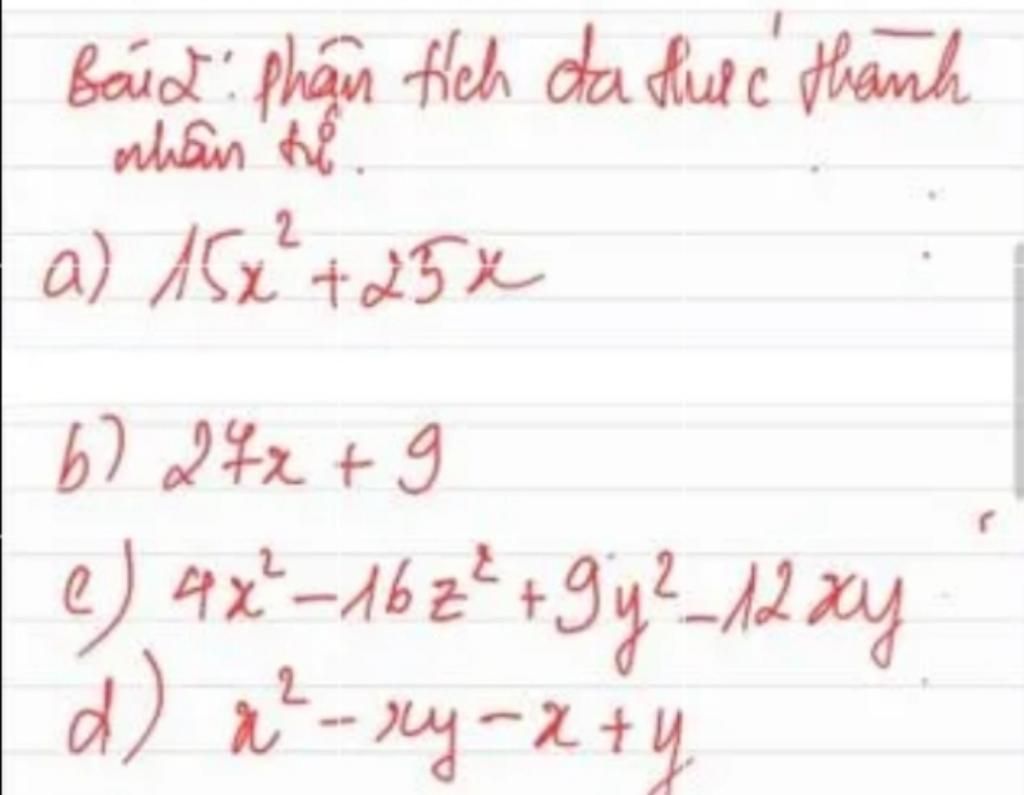 Bài 2: Phân tích đa thức thành
nhân tử.
a) 15x² + 25x
b) 27x + 9
c) 4x² - 16z² + 9y² - 12xy
d) x² - xy - x + y